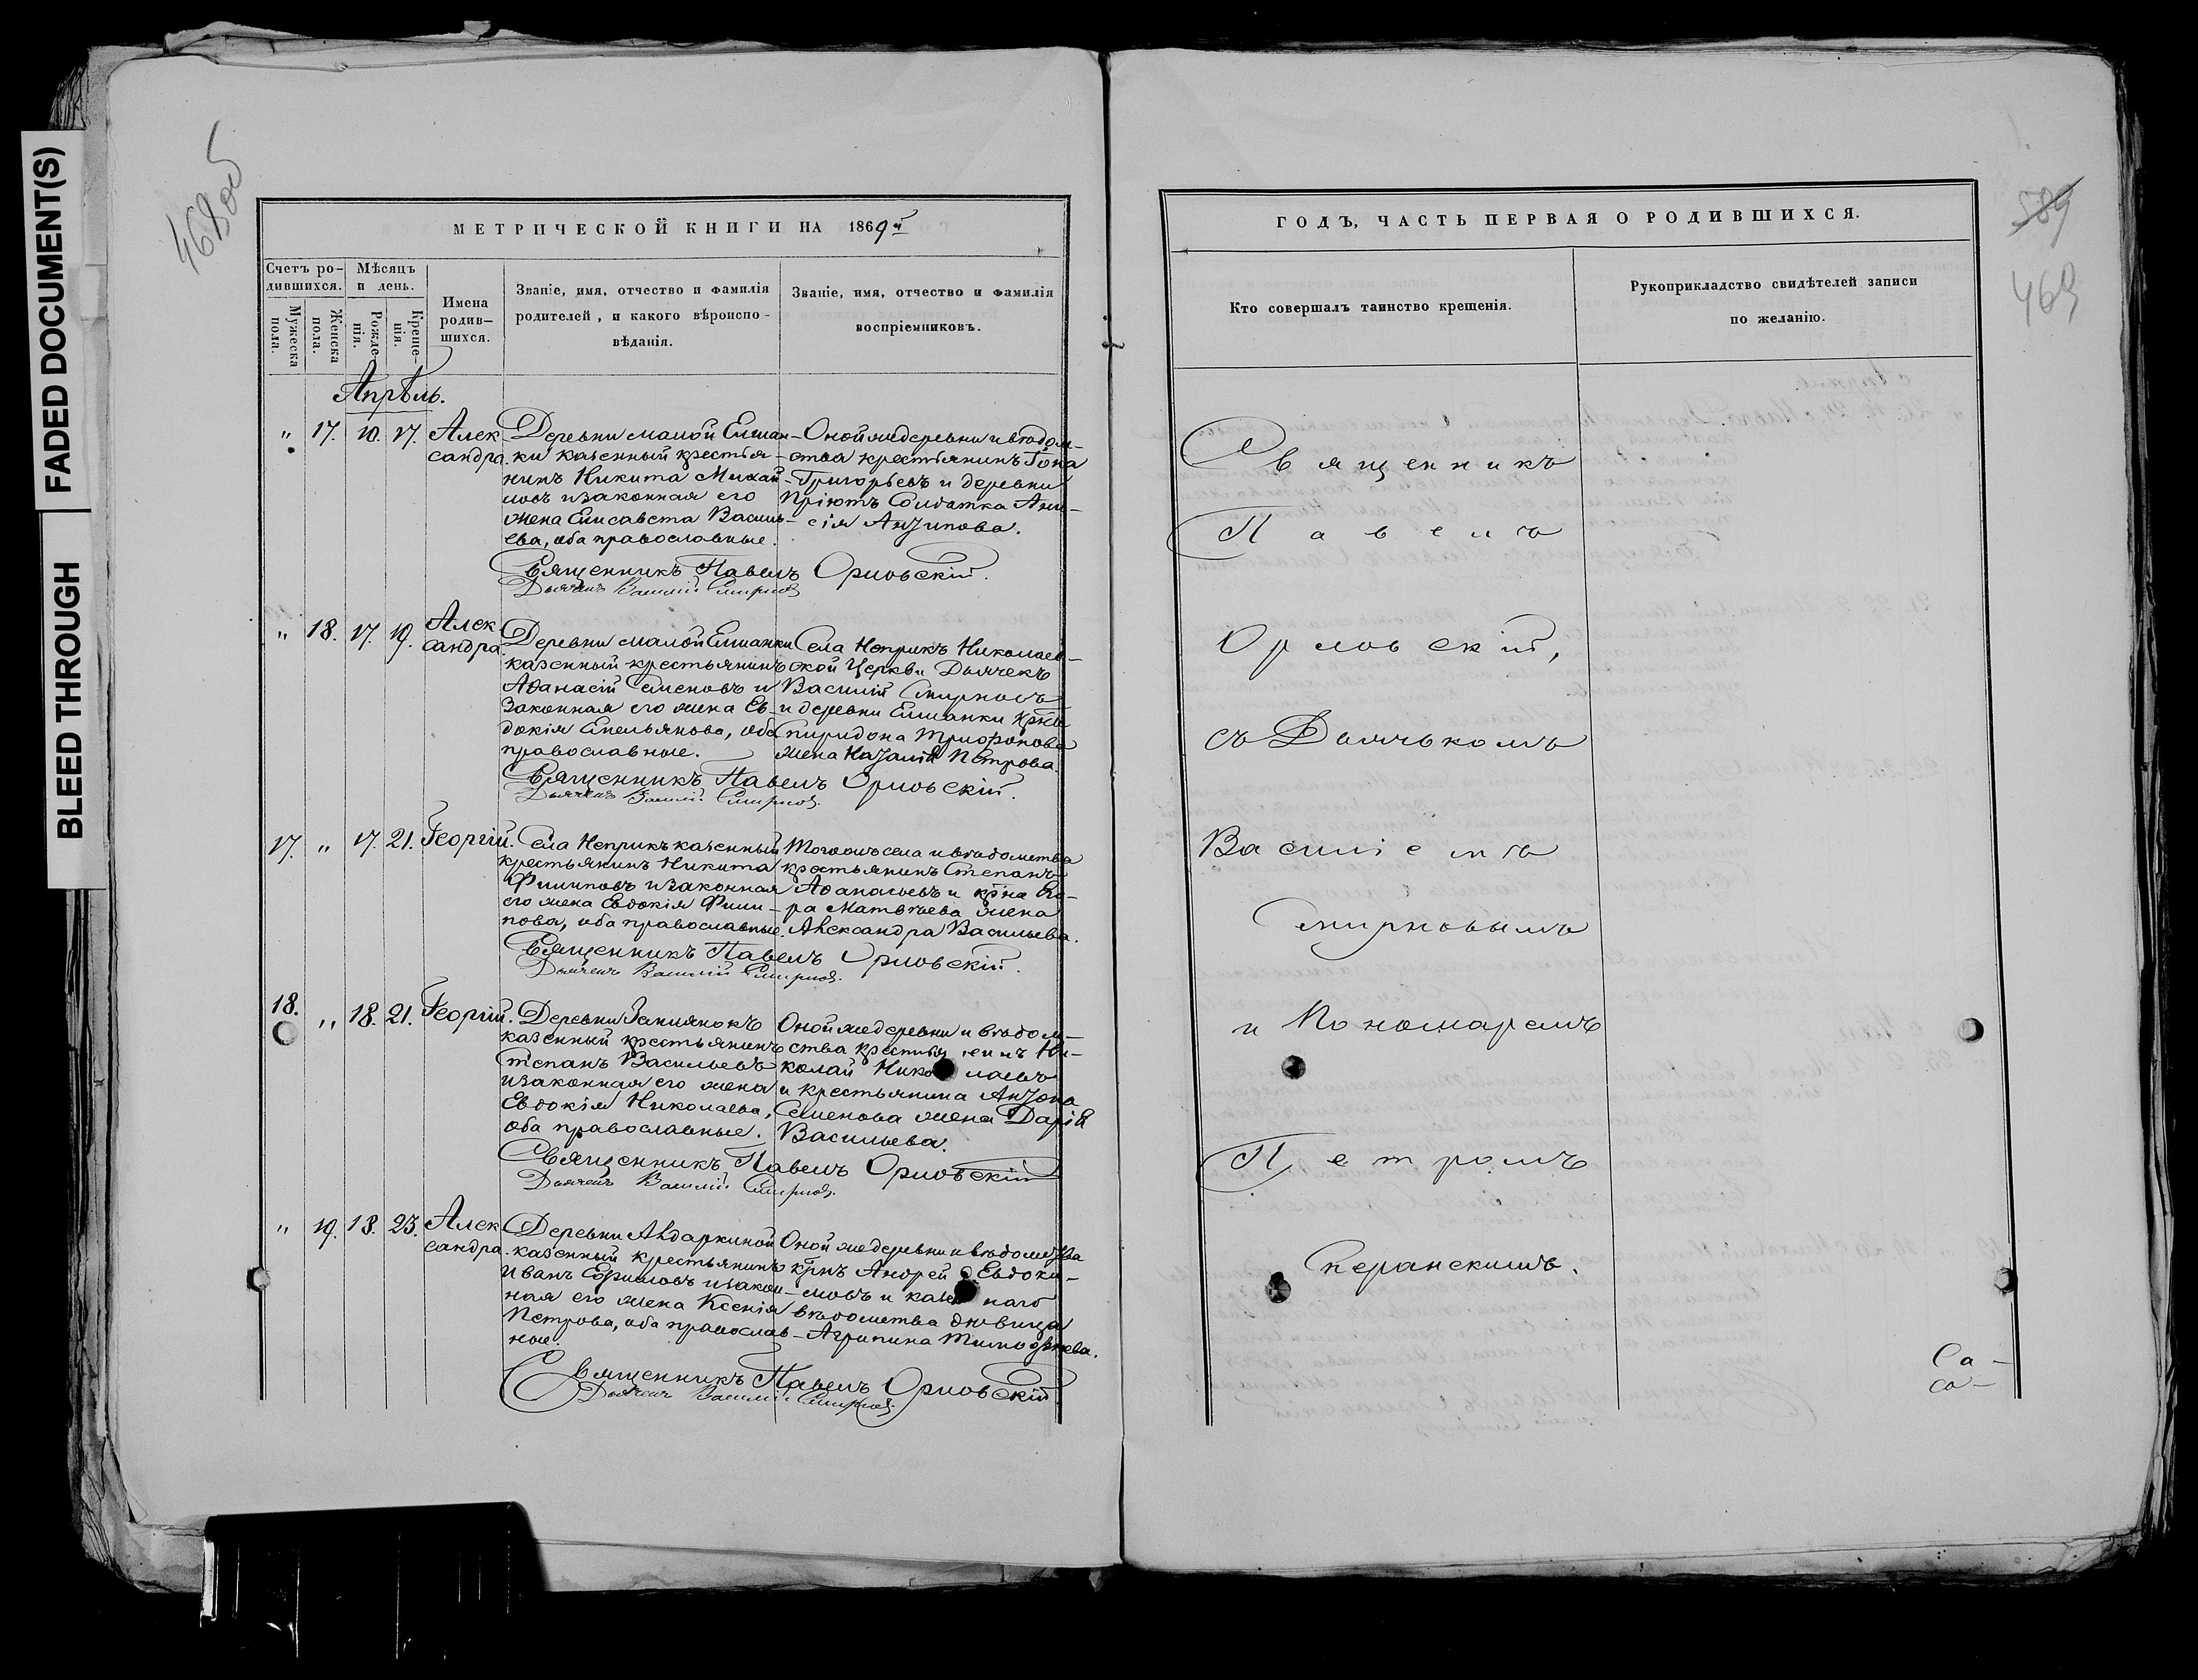 BLEED THROUGH
FADED DOCUMENT(S)
468об
МЕТРИЧЕСКОЙ КНИГИ НА 1869й
Счетъ ро-
дившихся.
Мужеска пола.
Женска пола.
Мѣсяцъ
и день.
Рожде-
нія.
Креще-
нія.
Имена
родив-
шихся.
Званіе, имя, отчество и фамилія
родителей, и какого вѣроиспо-
вѣданія.
Званіе, имя, отчество и фамилія
воспріемниковъ.
Апрѣль.
" 17. 10. 17. Алек
сандра.
Деревни малой Елшан-
ки казенный крестья-
нинъ Никита Михай-
ловъ и законная его
жена Елисавета Василь-
ева, оба православные.
Оной же деревни и вѣдом-
ства крестьянинъ
Григорьевъ и деревни
Пріютъ Солдатка Ани-
сія Антипова.
Священникъ Павелъ Орловскій.
Дьячекъ Василій Смирновъ
" 18. 17. 19. Алек
сандра.
Деревни малой Елшанки
казенный крестьянинъ
Аѳанасій Семеновъ и
законная его жена Ев-
докія Емельянова, оба
православные.
Села Неприкъ Николаев-
ской Церкви Дьячекъ
Василій Смирновъ
и деревни Елшанки
Спиридона Трифонова
жена Наталія Петрова.
Священникъ Павелъ Орловскій.
Дьячекъ Василій Смирновъ.
17. " 17. 21. Георгій.
Села Неприкъ казенный
крестьянинъ Никита
Филиповъ и законная
его жена Евдокія Фили-
пова, оба православные.
Того же села и вѣдомства
крестьянинъ Степанъ
Аѳанасьевъ и
ра Матвѣева жена
Александра Васильева.
Священникъ Павелъ Орловскій.
Дьячекъ Василій Смирновъ.
18. " 18. 21. Георгій.
Деревни
казенный крестьянинъ
Степанъ Васильевъ
и законная его жена
Евдокія Николаева,
оба православные.
Оной же деревни и вѣдом-
ства крестьянинъ Ни-
колай Николаевъ
и крестьянина Антона
Семенова жена Дарія
Васильева.
Священникъ Павелъ Орловскій
Дьячекъ Василій Смирновъ.
" 19. 18. 23. Алек
сандра.
Деревни Авдаркиной
казенный крестьянинъ
Иванъ Ефимовъ и закон-
ная его жена Ксенія
Петрова, оба православ-
ные.
Оной же деревни и вѣдомства
крнъ Андрей Евдоки-
мовъ и казеннаго
вѣдомства дѣвица
Агрипина Тимофѣева.
Священникъ Павелъ Орловскій.
Дьячекъ Василій Смирновъ.
589
469
ГОДЪ, ЧАСТЬ ПЕРВАЯ О РОДИВШИХСЯ.
Кто совершалъ таинство крещенія.
Рукоприкладство свидѣтелей записи
по желанію.
Священникъ
Павелъ
Орловскій,
съ Дьячькомъ
Василіемъ
Смирновымъ
и Пономаремъ
Петромъ
Сперанскимъ.
Са-
са-